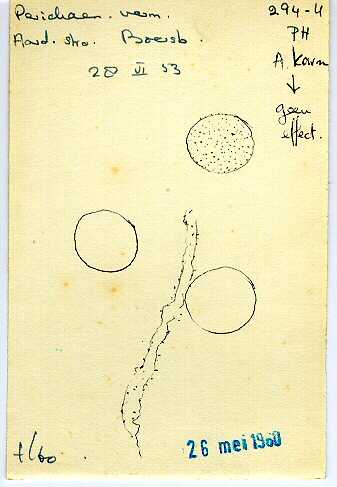 Perichaen. verm.
Aard. stro. Boersb.
28 VI 53
294-4
PH
A. Korn
geen
effect.
f/60
26 mei 1960